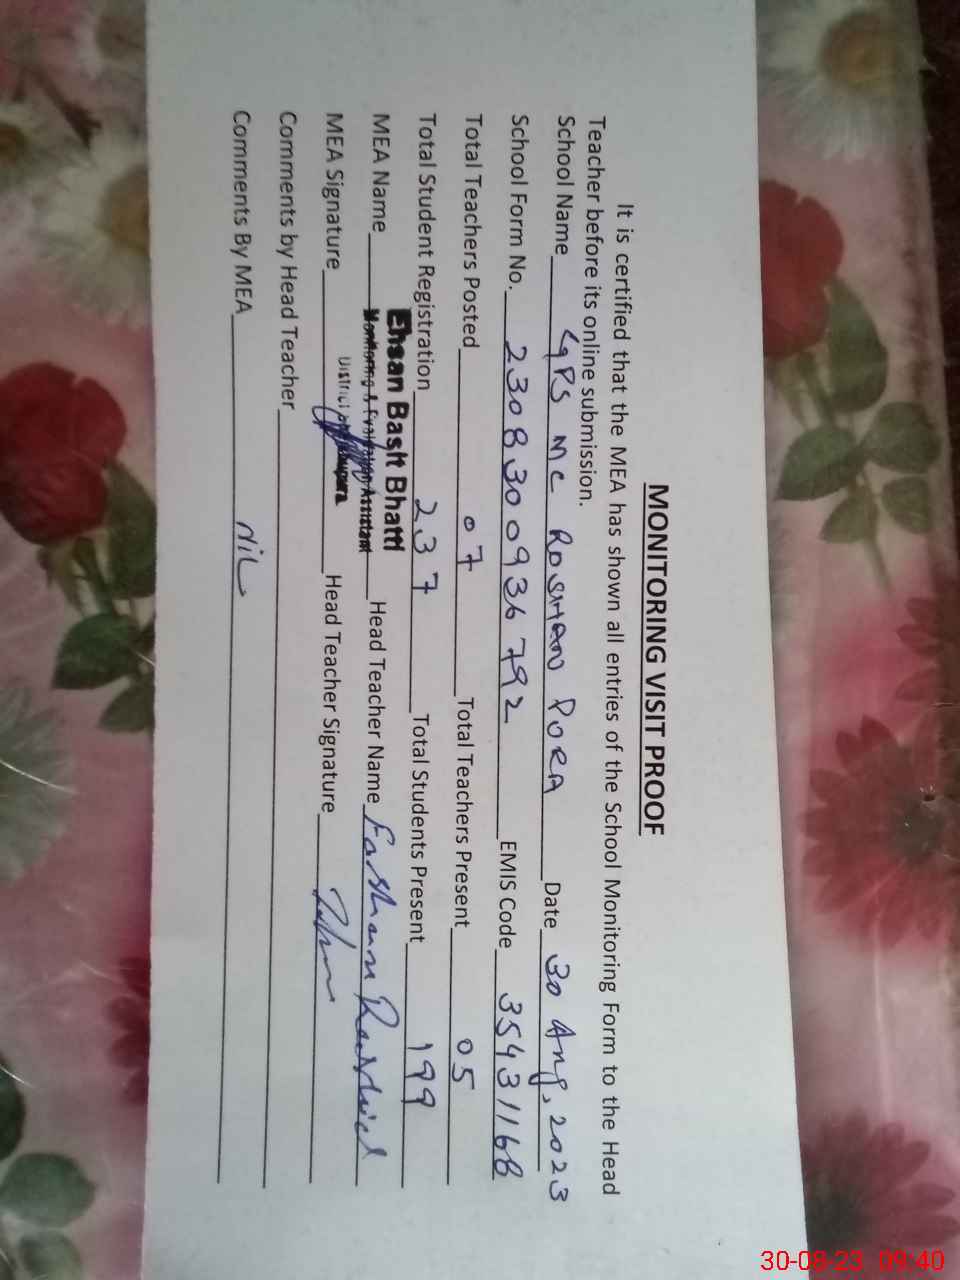 MONITORING VISIT PROOF
It is certified that the MEA has shown all entries of the School Monitoring Form to the Head
Teacher before its online submission.
School Name GPS MC ROSHAN PORA Date 30 Aug, 2023
School Form No. 2308300936792 EMIS Code 35431168
Total Teachers Posted 07 Total Teachers Present 05
Total Student Registration 237 Total Students Present 199
MEA Name Ehsan Basit Bhatti Head Teacher Name Farhana Rashid
Monitoring & Evaluation Assistant
District
MEA Signature Head Teacher Signature
Comments by Head Teacher
Comments By MEA NiL
30-08-23 09:40